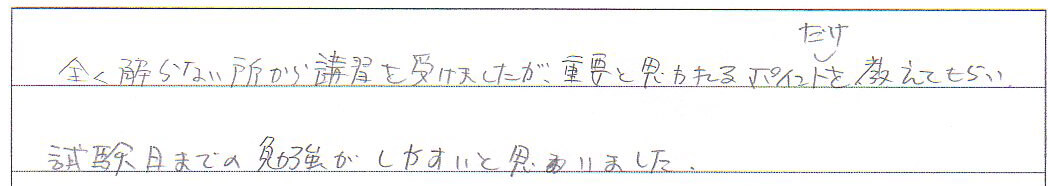 全く解らない所から講習を受けましたが、重要と思われるポイントだけを教えてもらい
試験日までの勉強がしやすいと思いました。